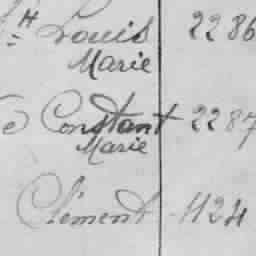 H Louis 2286
Marie
e Constant 2287
Marie
Clément 1124